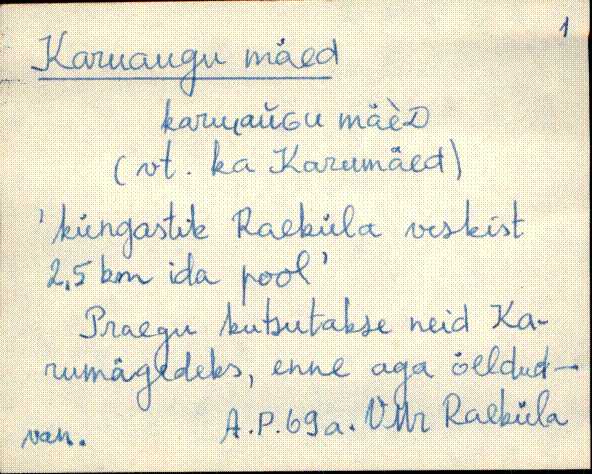 1
Karuaugu mäed
karuaŭGu mäèD
(vt. ka Karumäed)
'küngastik Raeküla veskist
2,5 km ida pool'
Praegu kutsutakse neid Ka-
rumägedeks, enne aga öeldud —
van. A.P. 69 a. VMr Raeküla